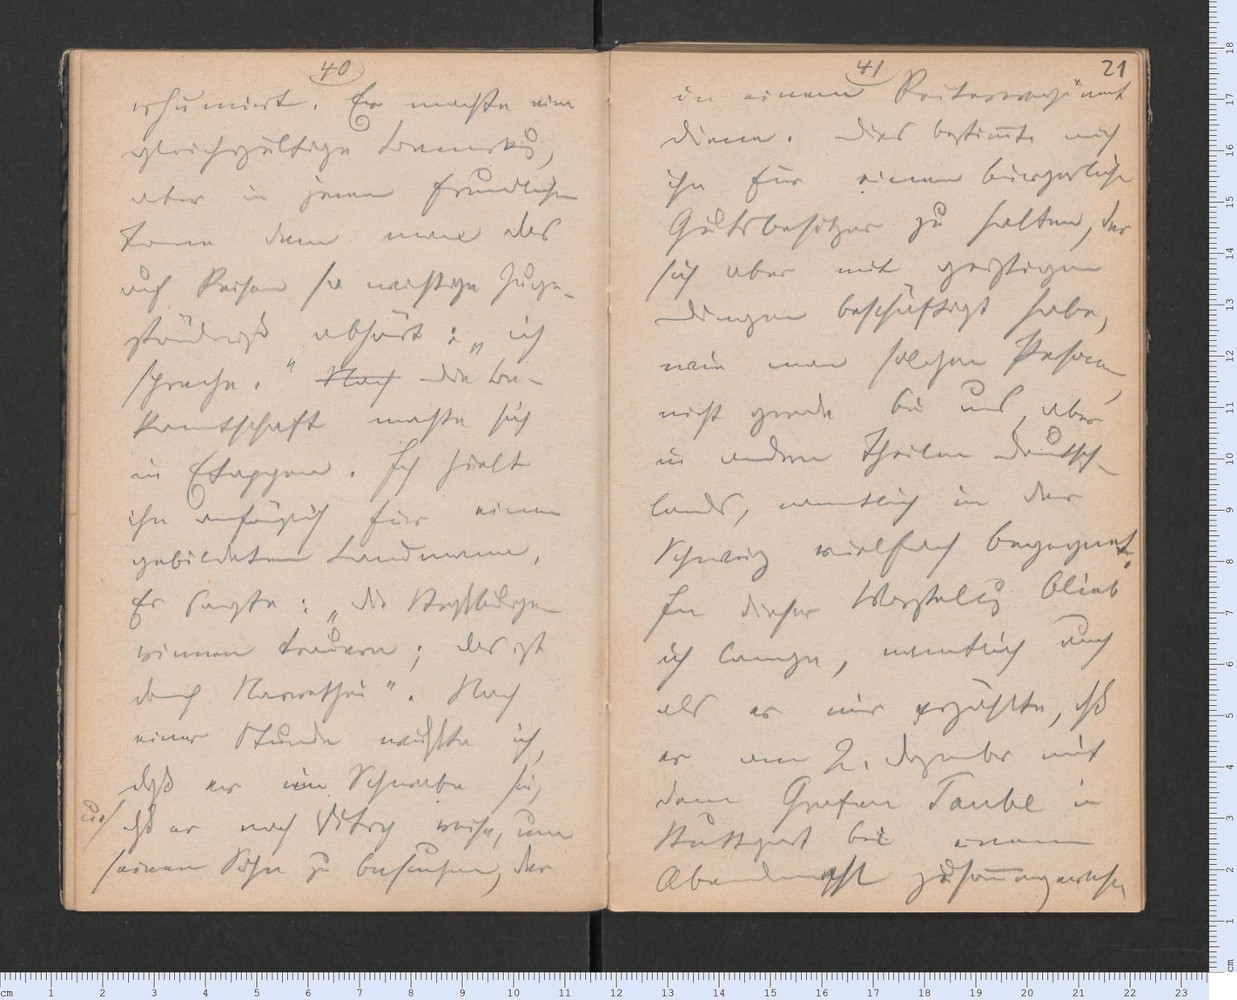 40
exhumirt. Er machte eine
gleichgültige Bemerkg,
aber in jenem freundlichen
Tone dem man das
auf Reisen so wichtige Zuge-
ständniß abhört: „ich
spreche." Nach Die Be-
kanntschaft machte sich
in Etappen. Ich hielt
ihn anfänglich für einen
gebildeten Landmann.
Er sagte: „die
trauern; das ist
doch". Nach
einer Stunde wußte ich,
daß er ein Schwabe sei,
daß er nach Vitry reise, um
seinen Sohn zu besuchen, der
41
21
in einem Reiterregiment
diene. Dies bestimmte mich
ihn für einen bürgerlichen
Gutsbesitzer zu halten, der
sich aber mit geistigen
Dingen beschäftigt habe,
wie man solchen Personen,
nicht gerade bei uns, aber
in andern Theilen Deutsch-
lands, namentlich in der
Schweiz vielfach begegnet.
In dieser Vorstellg blieb
ich lange, namentlich auch
als er mir erzählte, daß
er am 2. Dezember mit
dem Grafen Taube in
Stuttgart bei einem
Abendmahl zusammengewesen